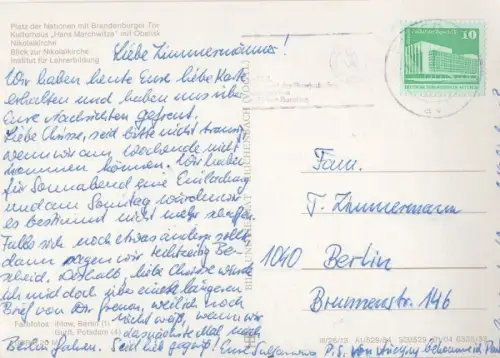 Platz der Nationen mit Brandenburger Tor
Kulturhaus „Hans Marchwitza" mit Obelisk
Nikolaikirche
Blick zur Nikolaikirche
Institut für Lehrerbildung
Liebe Zimmermänner!
Wir haben heute Eure liebe Karte
erhalten und haben uns über
Eure Nachrichten gefreut.
Liebe Christe, seid bitte nicht traurig,
wenn wir am Wochende nicht
kommen können. Wir haben
für Sonnabend eine Einladung
und am Sonntag würden wir
es bestimmt nicht mehr schaffen.
Falls sich noch etwas ändern sollte,
dann sagen wir rechtzeitig Be-
scheid. Deshalb, liebe Christe würde
ich mich doch über einen längeren
Brief von Dir freuen, weil ich noch
nicht weiß, wann wir
das nächste Mal nach
Berlin fahren. Seid lieb gegrüßt! Eure
P.S. von
BILD UND HEIMAT REICHENBACH (VOGTL)
10
DEUTSCHE DEMOKRATISCHE REPUBLIK
Fam.
T. Zimmermann
1040 Berlin
Brunnenstr. 146
Farbfotos: Ihlow, Berlin (1)
Gueff. Potsdam (4)